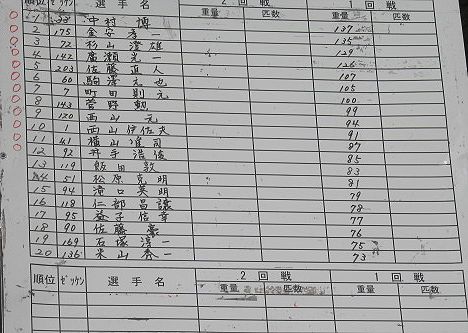 順位 ゼッケン 選手名 2回戦 1回戦
重量 匹数 重量 匹数
1 中村 博 137
2 175 金安孝一 135
3 72 杉山澄雄 129
4 142 廣瀬光一 126
5 203 佐藤直人 107
6 60 駒澤元也 105
7 7 町田則元 100
8 143 菅野勲 99
9 120 西山元 94
10 1 西山伊佐夫 91
11 41 横山准司 87
12 92 井手浩俊 85
13 119 飯田敦 83
14 51 松原克明 81
15 94 滝口英明 79
16 118 仁部昌譲 78
17 95 益子信幸 77
18 90 佐藤豪 76
19 169 石塚淳一 75
20 136 米山秀一 73
順位 ゼッケン 選手名 2回戦 1回戦
重量 匹数 重量 匹数